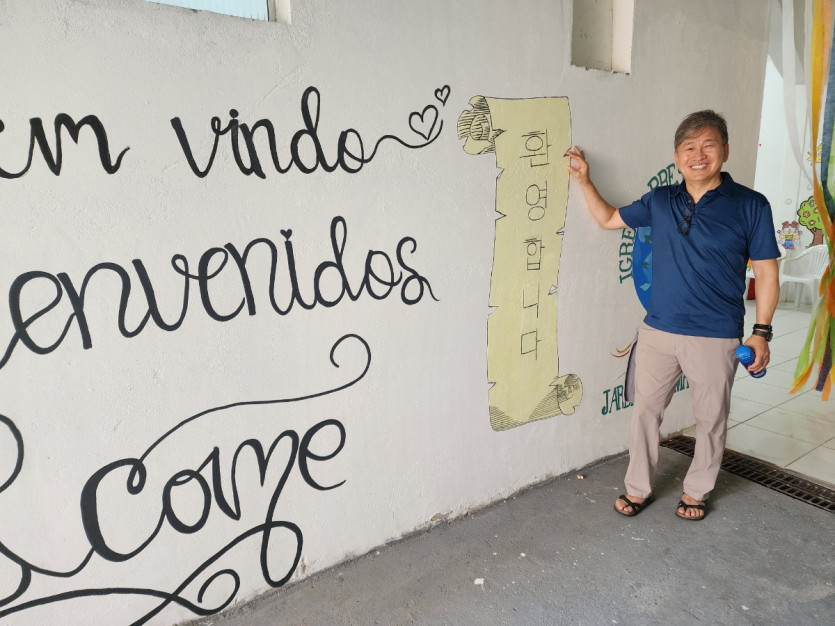 em vindo
envenidos
come
환영합니다
IGRE